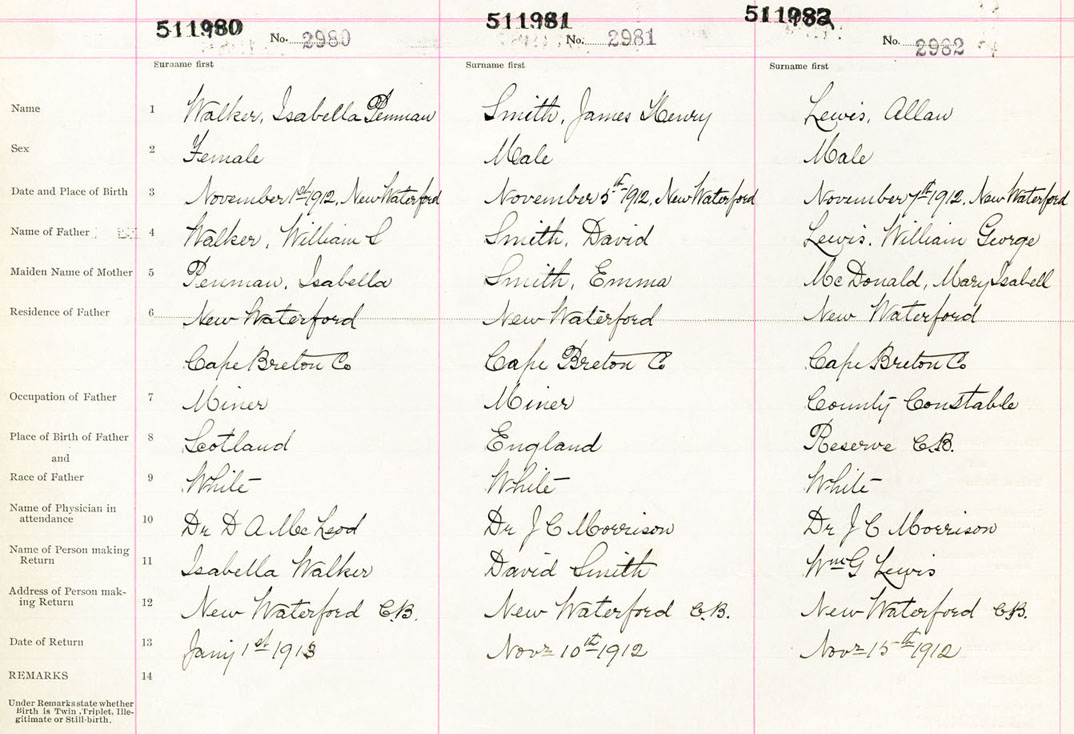 511980 511981 511982
No. 2980 No. 2981 No. 2982
Surname first Surname first Surname first
Name 1 Walker, Isabella Penman Smith, James Henry Lewis, Allan
Sex 2 Female Male Male
Date and Place of Birth 3 November 1st 1912, New Waterford November 5th 1912, New Waterford November 7th 1912, New Waterford
Name of Father 4 Walker, William S Smith, David Lewis, William George
Maiden Name of Mother 5 Penman, Isabella Smith, Emma McDonald, Mary Isabell
Residence of Father 6 New Waterford New Waterford New Waterford
Cape Breton Co Cape Breton Co Cape Breton Co
Occupation of Father 7 Miner Miner County Constable
Place of Birth of Father 8 Scotland England Reserve C.B.
and
Race of Father 9 White White White
Name of Physician in
attendance 10 Dr D A McLeod Dr J C Morrison Dr J C Morrison
Name of Person making
Return 11 Isabella Walker David Smith Wm G Lewis
Address of Person mak-
ing Return 12 New Waterford C.B. New Waterford C.B. New Waterford C.B.
Date of Return 13 Jany 1st 1913 Novr 10th 1912 Novr 15th 1912
REMARKS 14
Under Remarks state whether
Birth is Twin, Triplet, Ille-
gitimate or Still-birth.